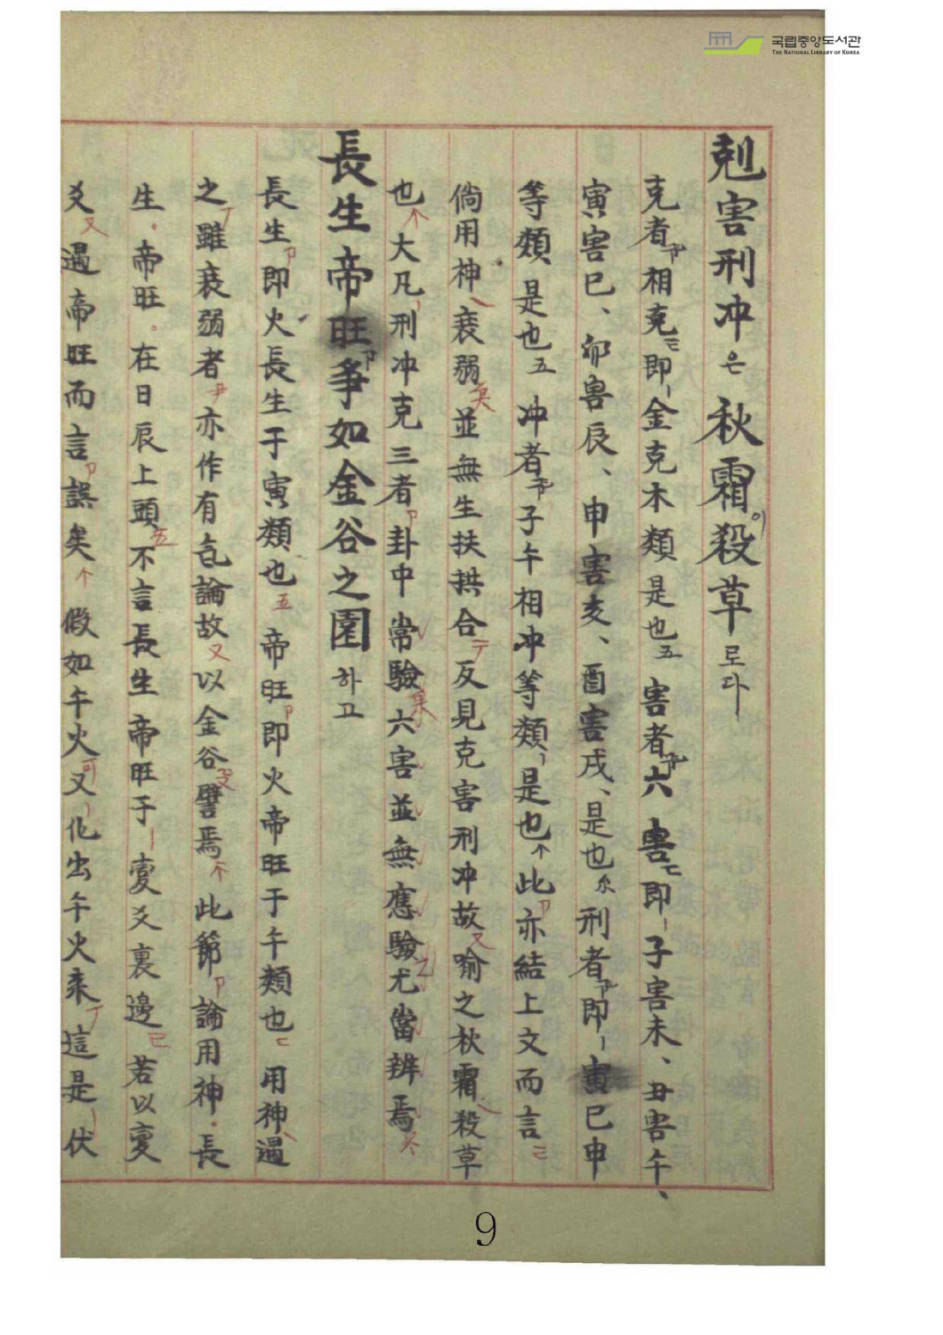 국립중앙도서관
THE NATIONAL LIBRARY OF KOREA
剋害刑冲은 秋霜이殺草로다
克者相克即金克木類是也五 害者六害即子害未、丑害午、
寅害巳、卯害辰、申害亥、酉害戌、是也 刑者即寅巳申
等類是也五 冲者子午相冲等類是也 此亦結上文而言
倘用神衰弱並無生扶拱合反見克害刑冲故又喻之秋霜殺草
也 大凡刑冲克三者卦中常驗六害並無應驗尤當辨焉
長生帝旺爭如金谷之園하고
長生即火長生于寅類也五 帝旺即火帝旺于午類也 用神遇
之雖衰弱者亦作有氣論故又以金谷譬焉 此節論用神長
生帝旺在日辰上頭五不言長生帝旺于變爻裏邊 若以變
爻又遇帝旺而言誤矣 假如午火又化出午火來這是伏
9